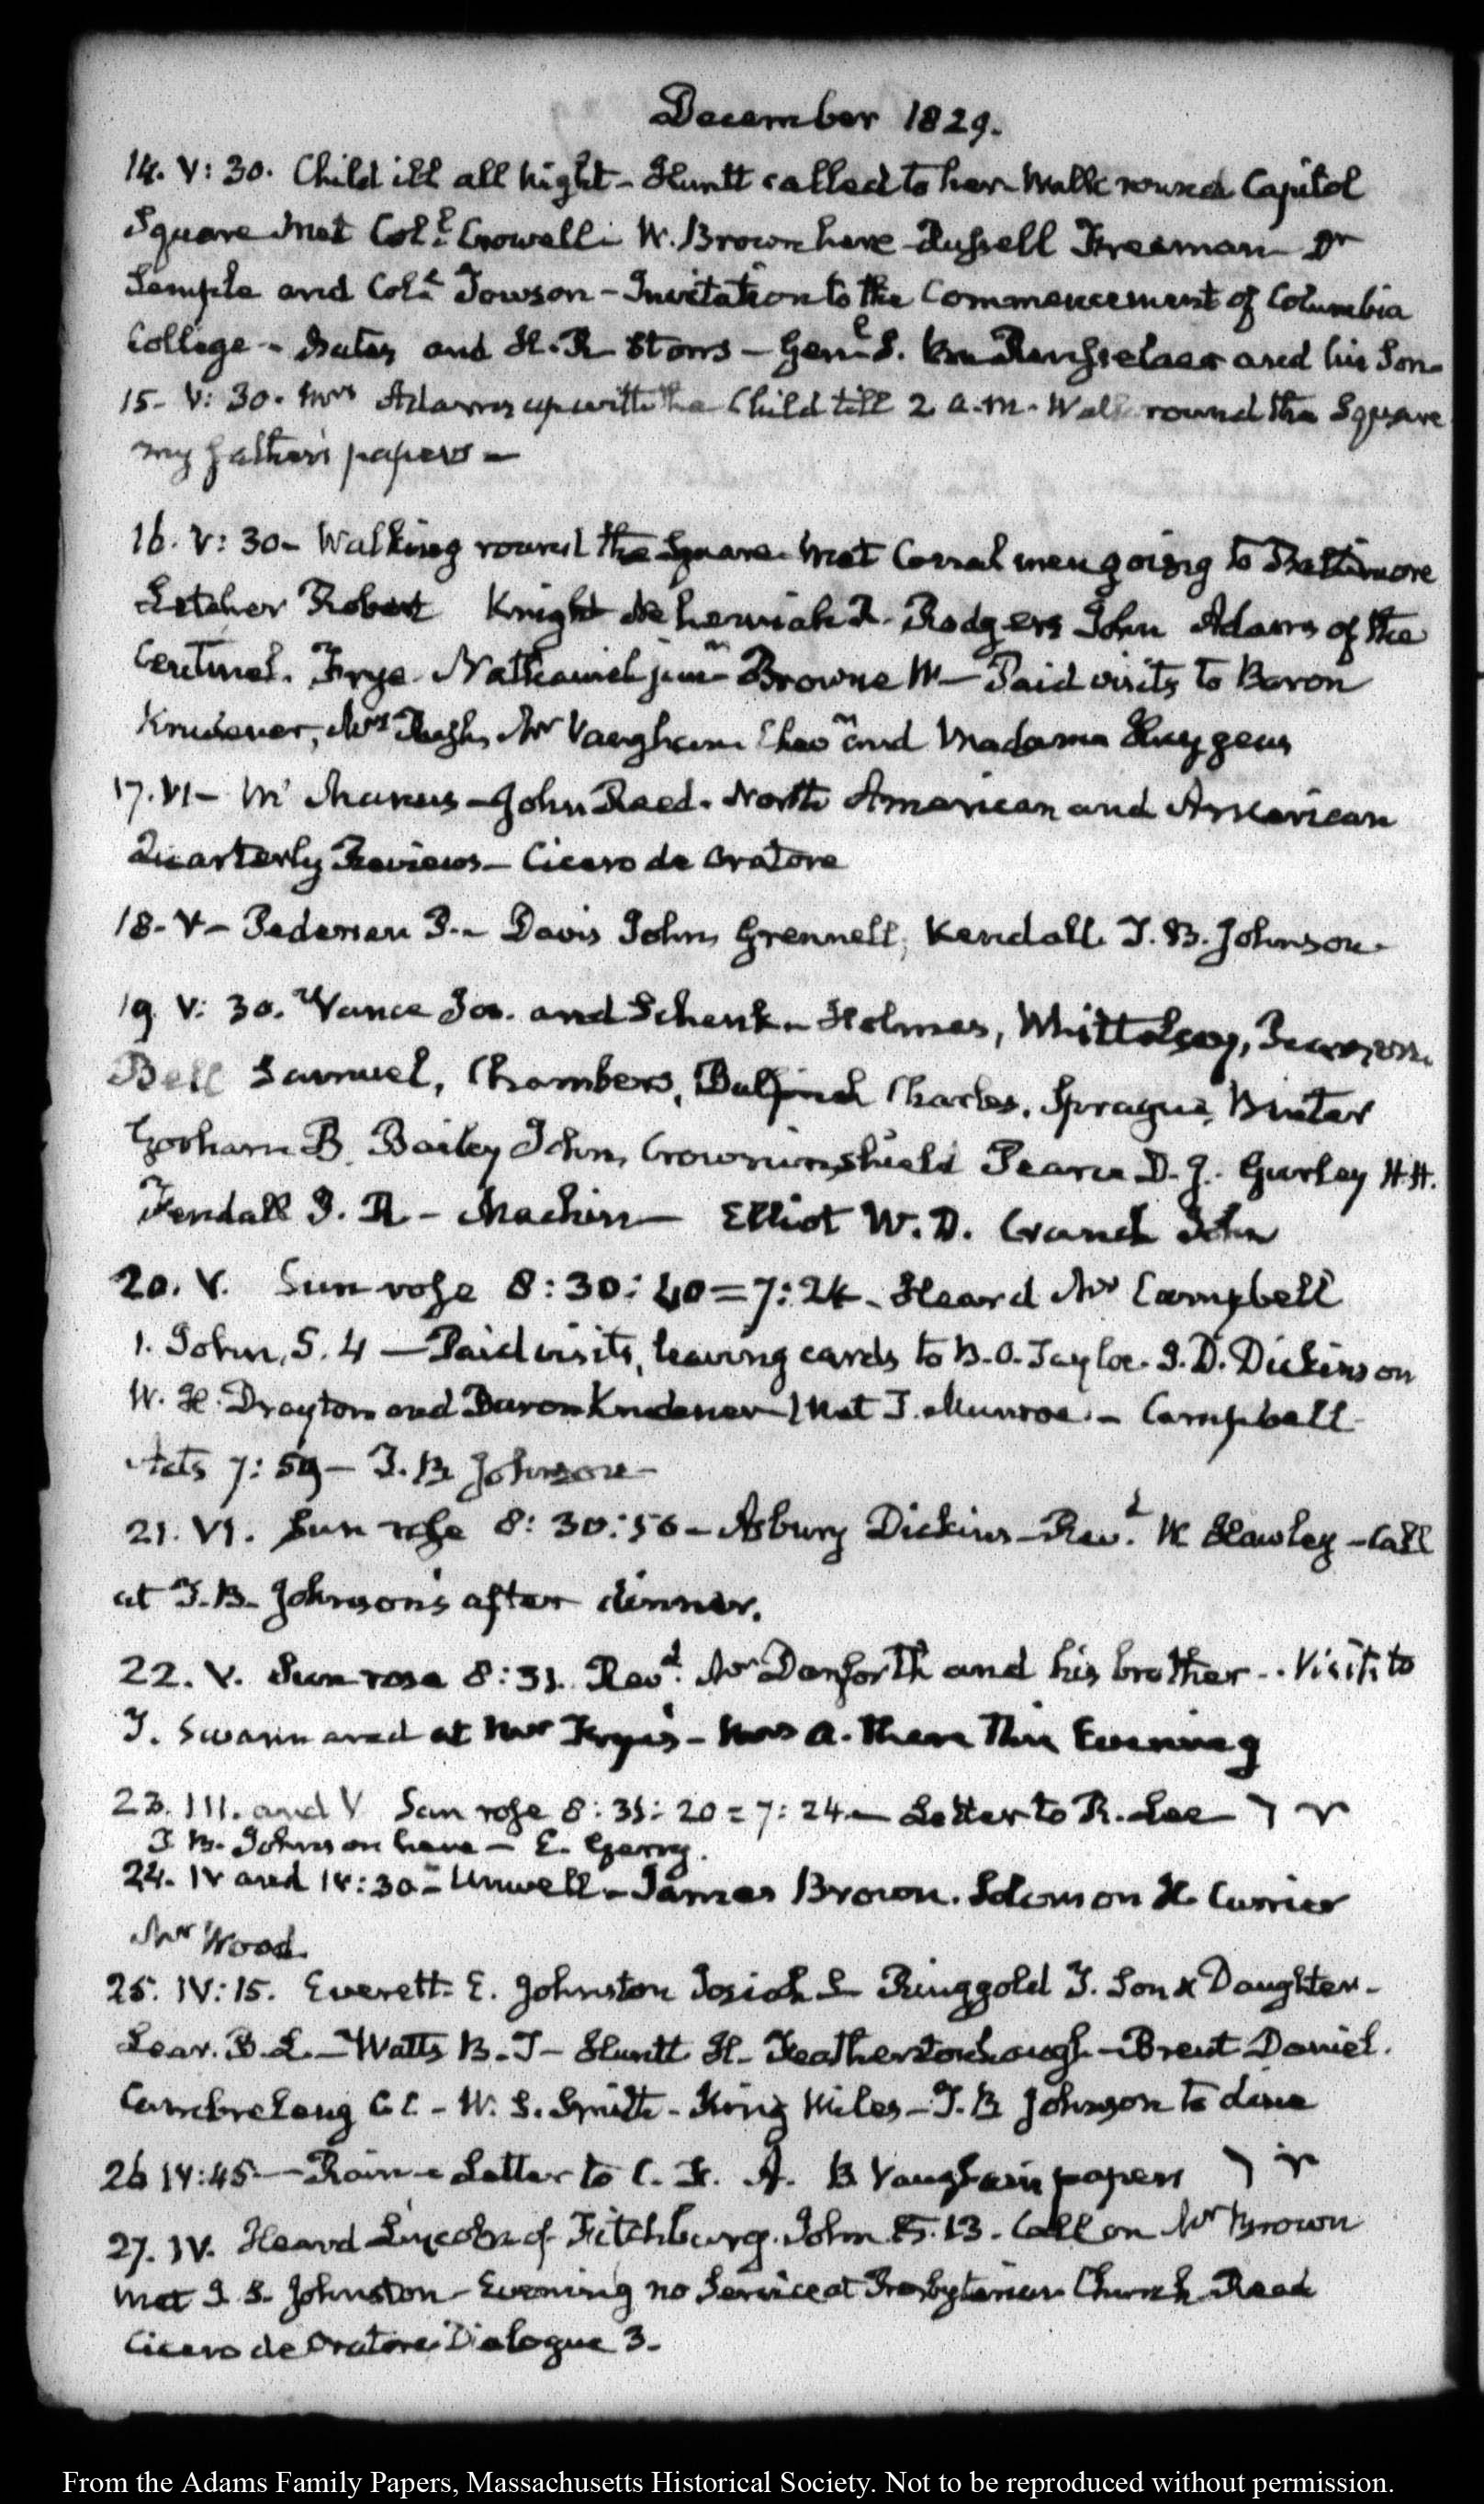 December 1829.
14. V: 30. Child ill all night – Huntt called to her Walk round Capitol
Square Met Col.l Crowell – W. Brown here – Russell Freeman – Dr
Semple and Col.l Towson – Invitation to the Commencement of Columbia
College – Bates and H. R Storrs – Gen.l S. Van Rensselaer and his Son –
15. V: 30. Mrs Adams up with the Child till 2 a.m. Walk round the Square
my father's papers –
16. V: 30 – Walking round the Square. Met Corral men going to Baltimore
Letcher Robert Knight Nehemiah R. Rodgers John Adams of the
Centinel. Frye Nathaniel junr Browne W – Paid visits to Baron
Krudener, Mrs Rush, Mr Vaughan Chevr and Madame Huygens
17. VI – – John Reed. North American and American
Quarterly Reviews – Cicero de Oratore
18. V – Pedersen P. – Davis John, Grennell, Kendall. T. B. Johnson –
19. V: 30. Vance Jos. and Schenk – Holmes, Whittelsey,
Bell Samuel, Chambers, Bulfinch Charles, Sprague,
Gorham B. Bailey John, Crowninshield Pearce D. J. Gurley H. H.
Kendall J. R – Machin – Elliot W. D. Cranch John
20. V. Sun rose 8: 30: 40 = 7: 24 – Heard Mr Campbell
1. John, 5. 4 – Paid visits, leaving cards to B. O. Tayloe. J. D. Dickinson
W. H. Drayton and Baron Krudener – Met J. Munroe. – Campbell
Acts 7: 59 – T. B. Johnson –
21. VI. Sun rose 8: 30: 56 – Asbury Dickins – Rev.d W Hawley – Call
at T. B. Johnson's after dinner.
22. V. Sun rose 8: 31. Rev.d Mr Danforth and his brother – Visit to
T. Swann and at Mr Frye's – Mrs A. there this Evening
23. III. and V Sun rose 8: 31: 20 = 7: 24 – Letter to R. Lee
T. B. Johnson here – E. Gerry.
24. IV and IV: 30 – Unwell – James Brown. Solomon H. Currier
Mr Wood.
25. IV: 15. Everett E. Johnston Josiah S – Ringgold T. Son & Daughter –
Lear. B. L. – Watts B. T – Huntt H – Featherstonhaugh – Brent Daniel.
Cambreleng C. C. – W. S. Smith – King Miles – T. B. Johnson to dine
26 IV: 45 – Rain – Letter to C. F. A. B Vaughan papers
27. IV. Heard Lincoln of Fitchburg. John 15. 13. Call on Mr Brown
met J. S. Johnston – Evening no Service at Presbyterian Church Read
Cicero de Oratore Dialogue 3.
From the Adams Family Papers, Massachusetts Historical Society. Not to be reproduced without permission.